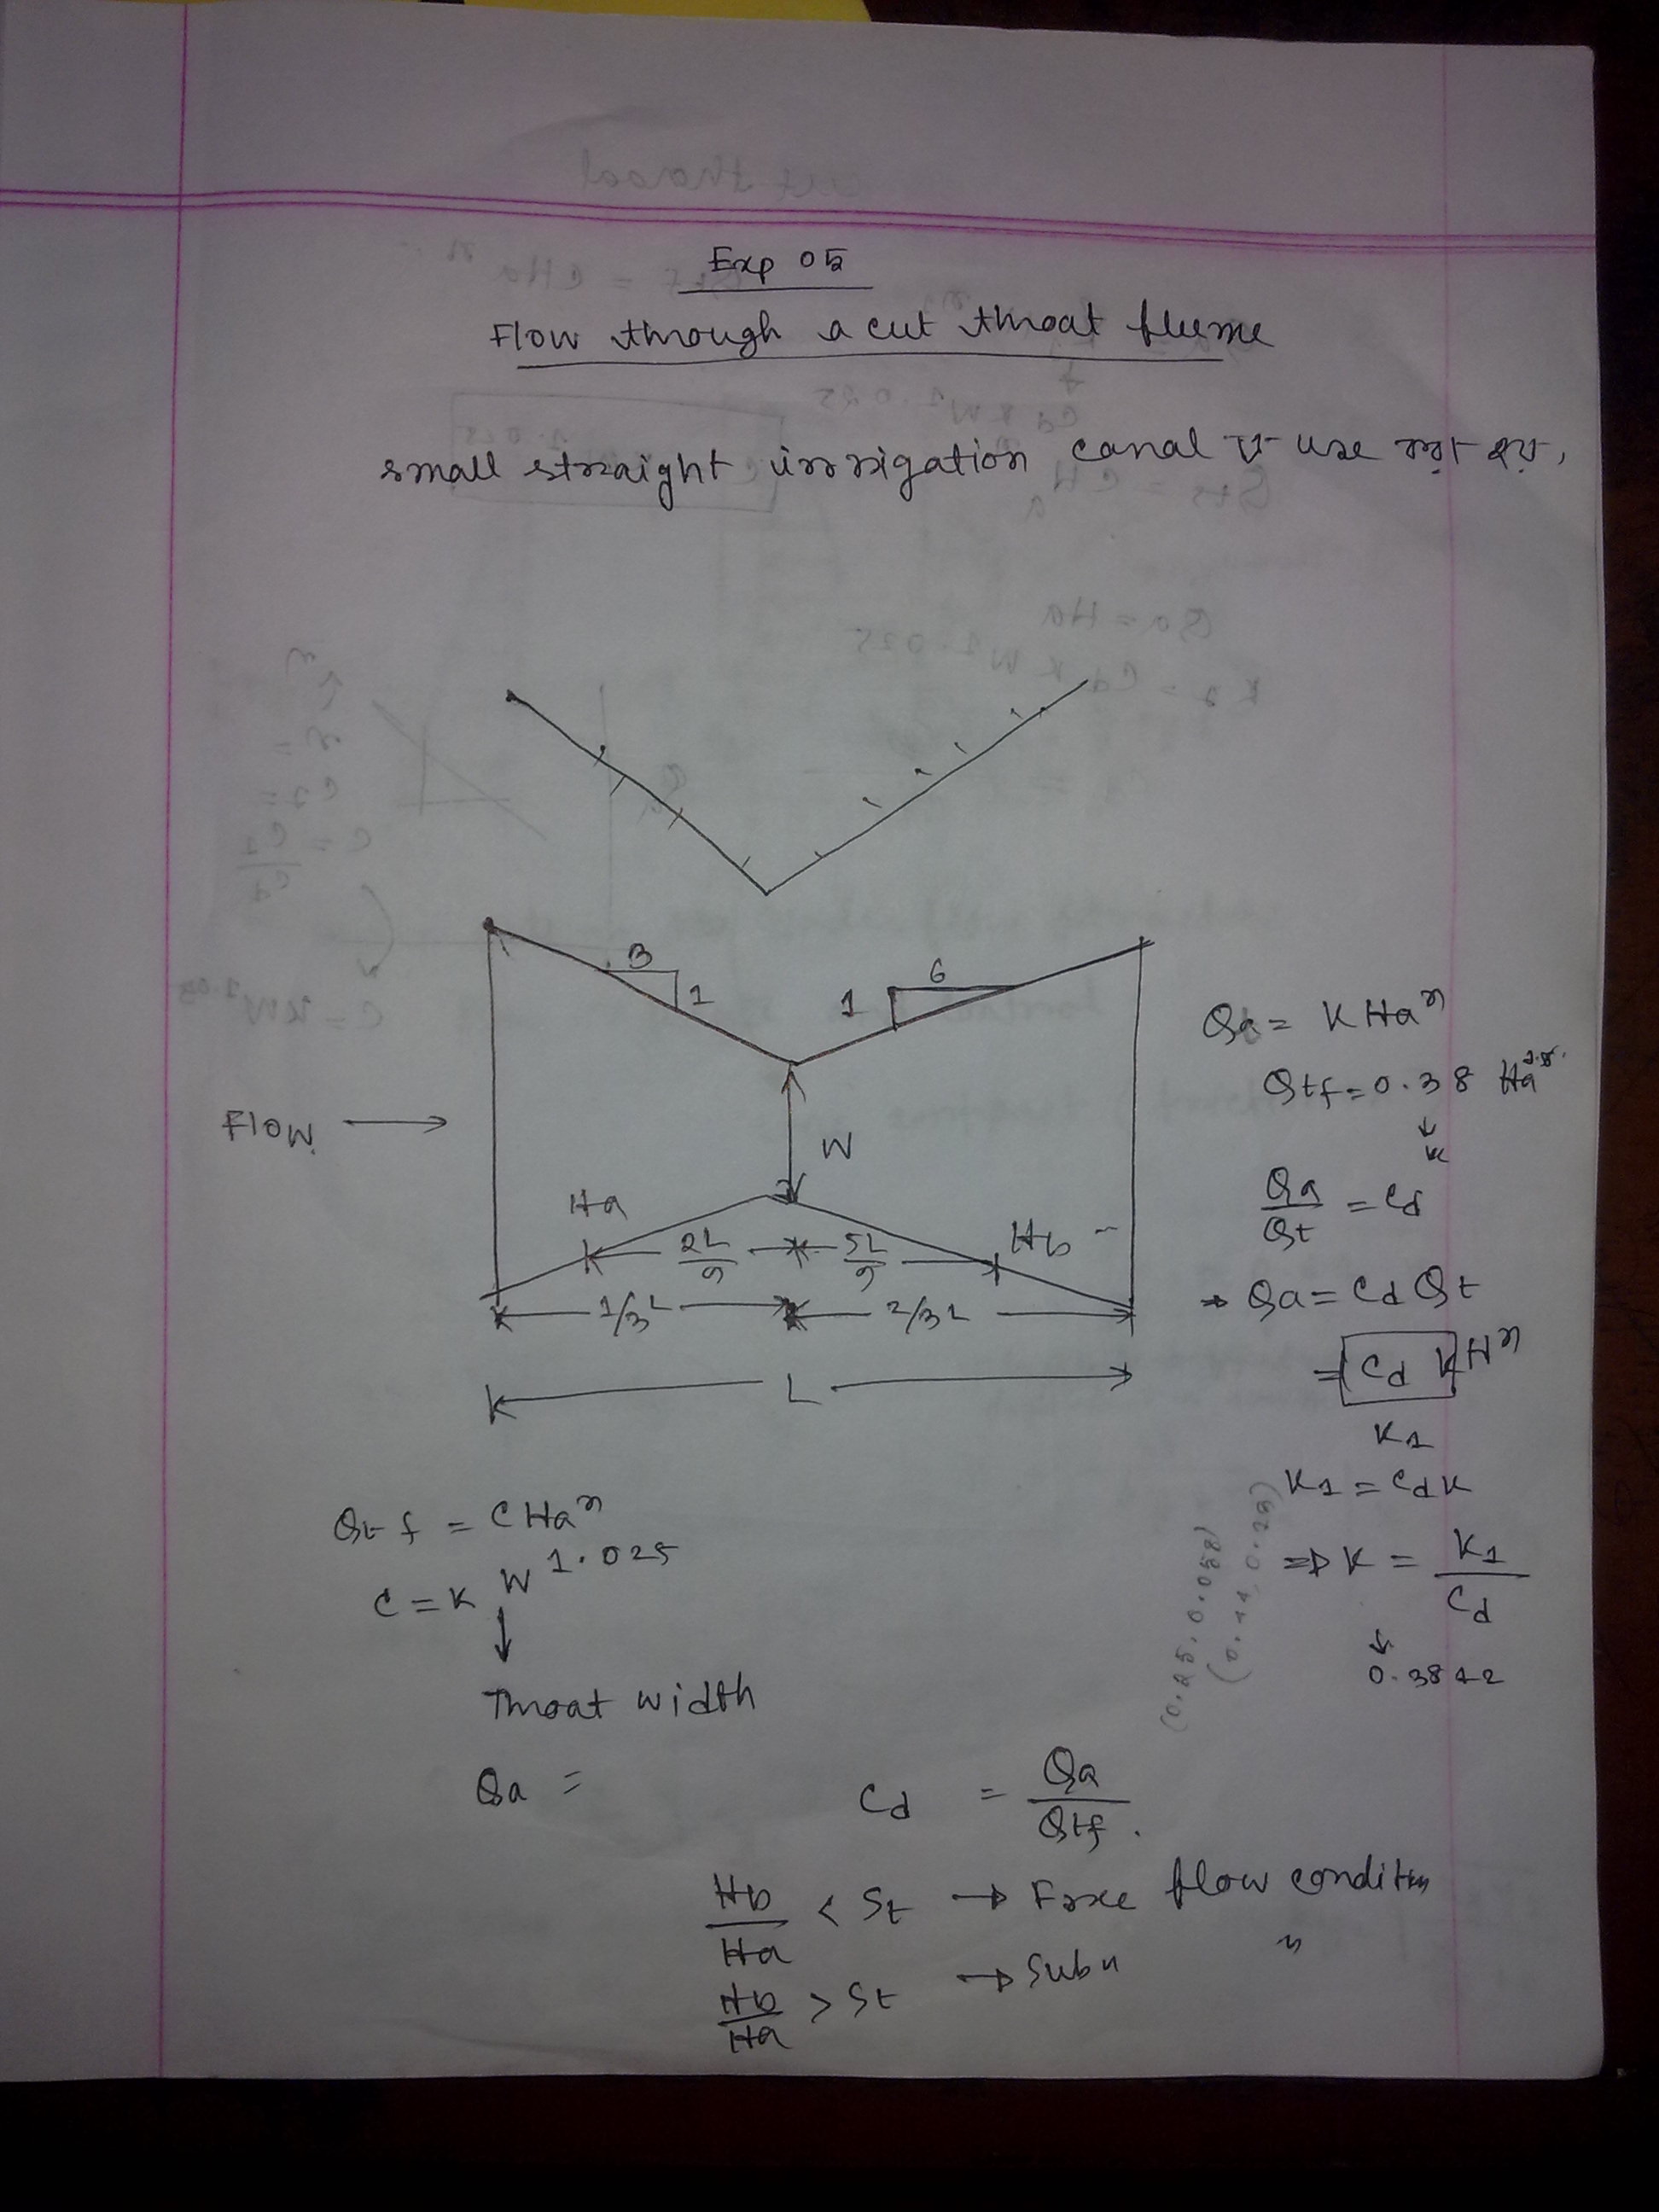 Exp 05
Flow through a cut throat flume
small straight irrigation canal এ use করা হয়,
3
1
1
6
Flow →
W
Ha
2L/9
5L/9
Hb
1/3 L
2/3 L
L
Qa = K Ha^n
Qtf = 0.38 Ha
↓
K
Qa/Qt = Cd
⇒ Qa = Cd Qt
= Cd K H^n
K1
K1 = Cd K
⇒ K = K1/Cd
↓
0.3842
(0.25, 0.058)
(0.44, 0.29)
Qt f = C Ha^n
C = K W^1.025
↓
Throat width
Qa =
Cd = Qa/Qtf .
Hb/Ha < St → Free flow condition
Hb/Ha > St → Sub "